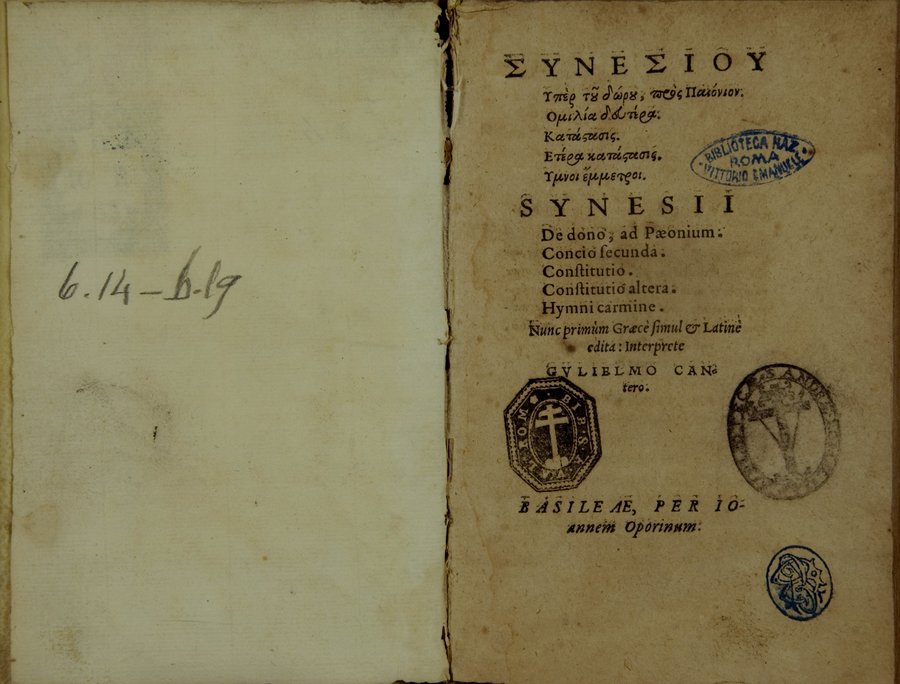 6.14 – b.19
ΣΥΝΕΣΙΟΥ
Υπὲρ τοῦ δώρου, πρὸς Παιόνιον.
Ομιλία δευτέρα.
Κατάστασις.
Ετέρα κατάστασις.
Υμνοι ἔμμετροι.
BIBLIOTECA NAZ.
ROMA
VITTORIO EMANUELE
SYNESII
De dono, ad Pæonium.
Concio ſecunda.
Conſtitutio.
Conſtitutio altera.
Hymni carmine.
Nunc primùm Græcè ſimul & Latinè
edita: Interprete
GVLIELMO CAN-
tero.
BIB. S.
ROM
S. AND
BASILEAE, PER IO-
annem Oporinum.